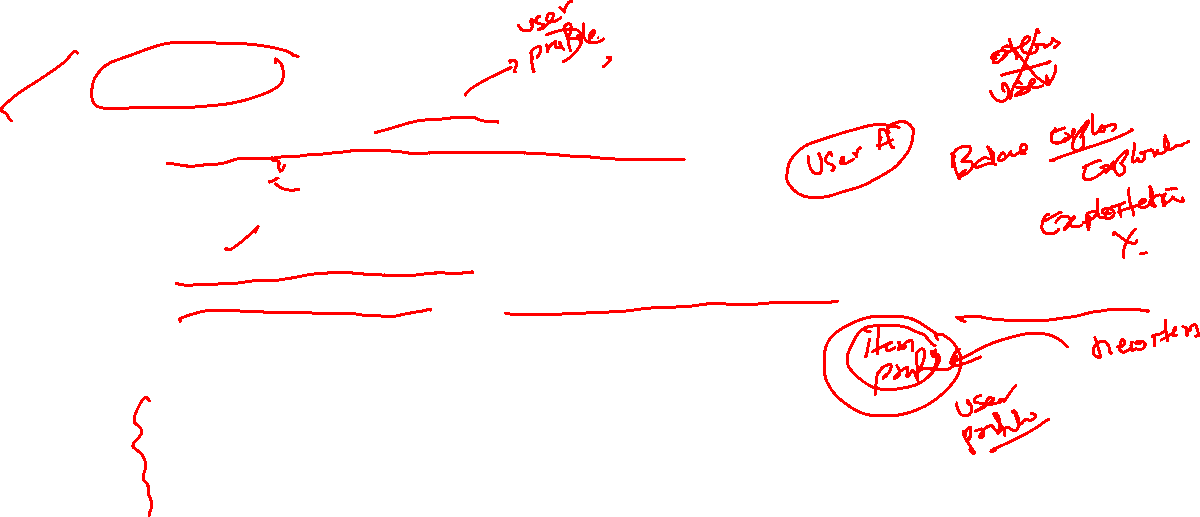 user
profile,
items
user
User A
Balance Explo
Exploitation
X.
item
profile
new items
user
profile